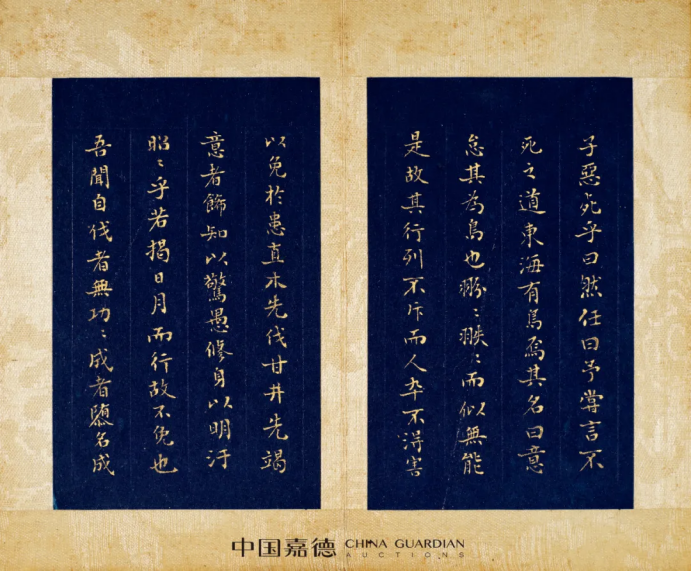 子惡死乎曰然任曰予嘗言不
死之道東海有鳥焉其名曰意
怠其為鳥也翂〻翐〻而似無能
是故其行列不斥而人卒不得害
以免於患直木先伐甘井先竭
意者飾知以驚愚修身以明汙
昭〻乎若揭日月而行故不免也
吾聞自伐者無功〻成者隳名成
中国嘉德 CHINA GUARDIAN
AUCTIONS